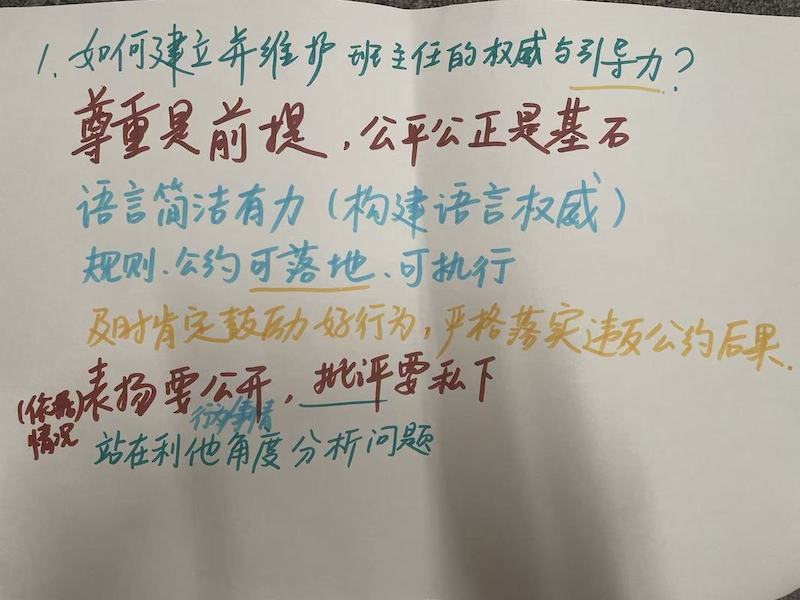 1. 如何建立并维护班主任的权威与引导力?
尊重是前提,公平公正是基石
语言简洁有力(构建语言权威)
规则、公约可落地、可执行
及时肯定鼓励好行为,严格落实违反公约后果.
(依 情况)表扬要公开,批评要私下
行为事情
站在利他角度分析问题